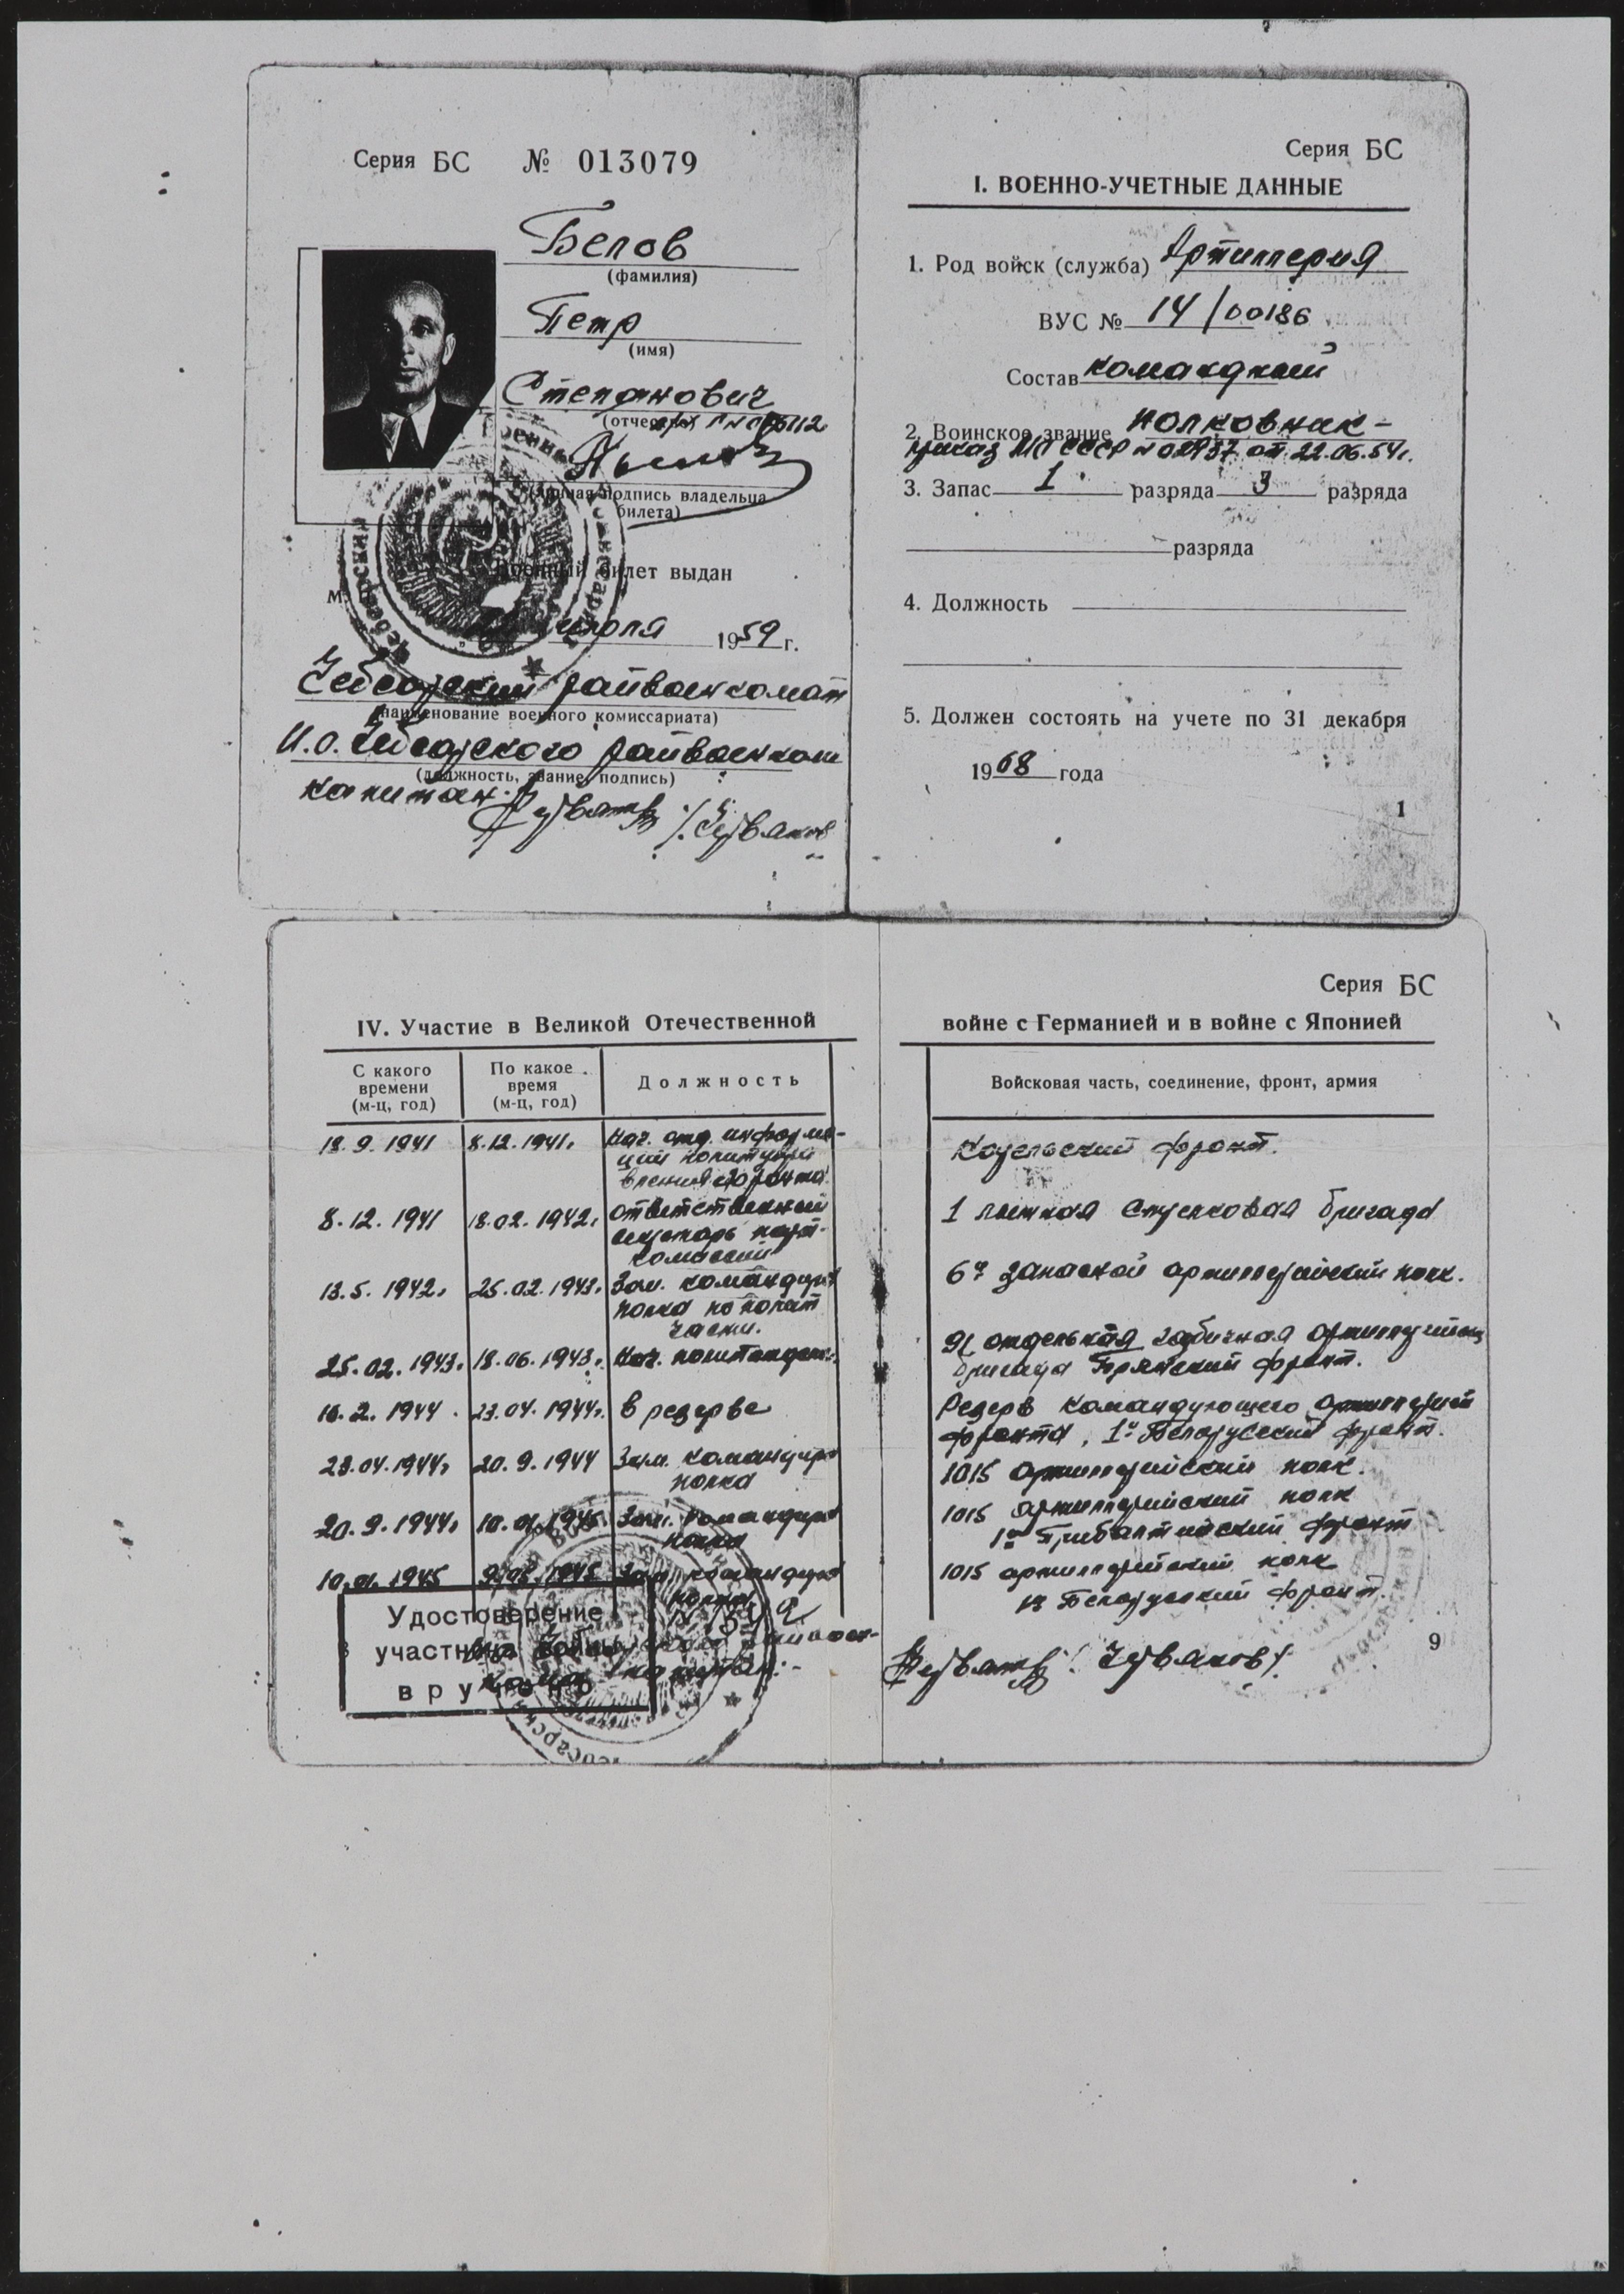 Серия БС № 013079
Белов
(фамилия)
Петр
(имя)
Степанович
(отчество)
(личная подпись владельца
билета)
Военный билет выдан
М.
июля 1959 г.
Чебсарский райвоенкомат
(наименование военного комиссариата)
И.О. Чебсарского райвоенком
(должность, звание, подпись)
капитан
Серия БС
I. ВОЕННО-УЧЕТНЫЕ ДАННЫЕ
1. Род войск (служба) Артиллерия
ВУС № 14/00186
Состав командный
2. Воинское звание полковник-
приказ МО СССР № от 22.06.54г.
3. Запас 1 разряда 3 разряда
разряда
4. Должность
5. Должен состоять на учете по 31 декабря
1968 года
1
IV. Участие в Великой Отечественной
С какого времени (м-ц, год)
По какое время (м-ц, год)
Должность
18.9.1941 8.12.1941г. Нач. отд. информа-
ции политупра
вления фронта.
8.12.1941 18.02.1942г. ответственный
секретарь парт-
комиссии
13.5.1942г. 25.02.1943г. Зам. командира
полка по полит
части.
25.02.1943г. 18.06.1943г. Нач.
16.2.1944 23.04.1944г. в резерве
23.04.1944г. 20.9.1944 Зам. командира
полка
20.9.1944г. 10.01.1945г. Зам. командира
полка
10.01.1945 Зам. командира
полка
Удостоверение
участника войны
вручено
капитан:-
Серия БС
войне с Германией и в войне с Японией
Войсковая часть, соединение, фронт, армия
фронт.
1 лыжная стрелковая бригада
6й запасной артиллерийский полк.
отдельная гаубичная
бригада Брянский фронт.
Резерв командующего артиллерией
фронта, 1й Белорусский фронт.
1015 артиллерийский полк.
1015 артиллерийский полк
1й Прибалтийский фронт
1015 артиллерийский полк
1й Белорусский фронт.
9